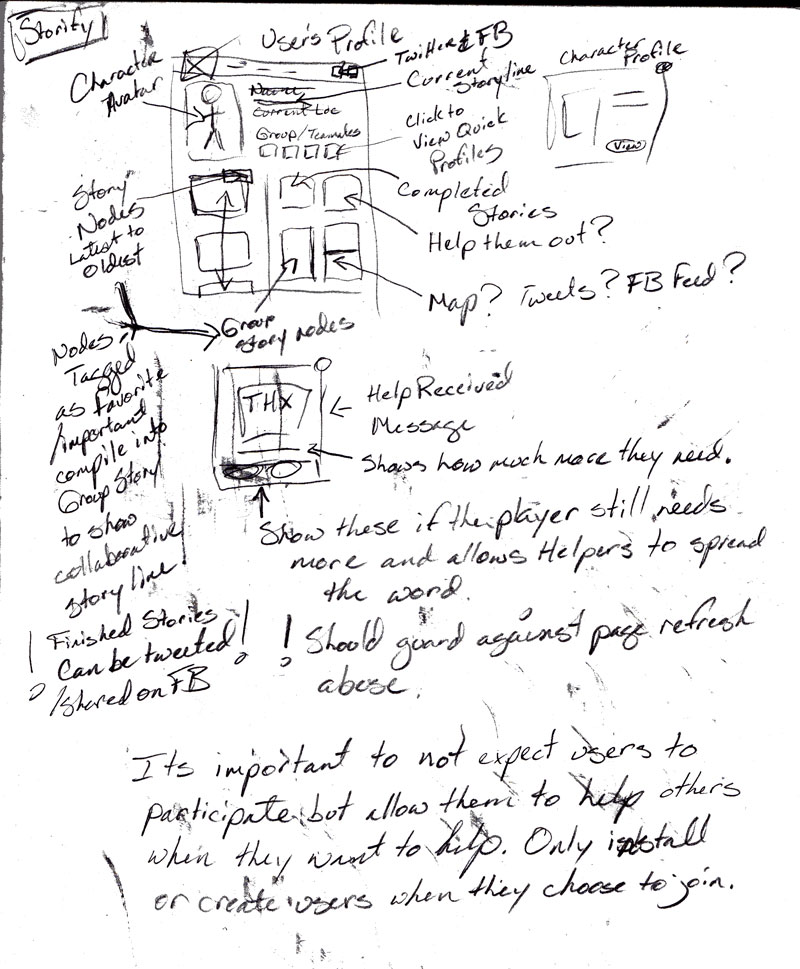 Storify
User's Profile
Twitter & FB
Character
Avatar
Name
Current Loc
Group/Teamates
Current
Storyline
Click to
View Quick
Profiles
Character
Profile
View
Story
Nodes
Latest to
Oldest
Completed
Stories
Help them out?
Map? Tweets? FB Feed?
Group
story nodes
Nodes
Tagged
as favorite
/important
compile into
Group Story
to show
collaborative
story line.
THX
Help Received
Message
Shows how much more they need.
Show these if the player still needs
more and allows Helpers to spread
the word.
Finished Stories
Can be tweeted
/shared on FB
! Should guard against page refresh
abuse.
Its important to not expect users to
participate but allow them to help others
when they want to help. Only install
or create users when they choose to join.